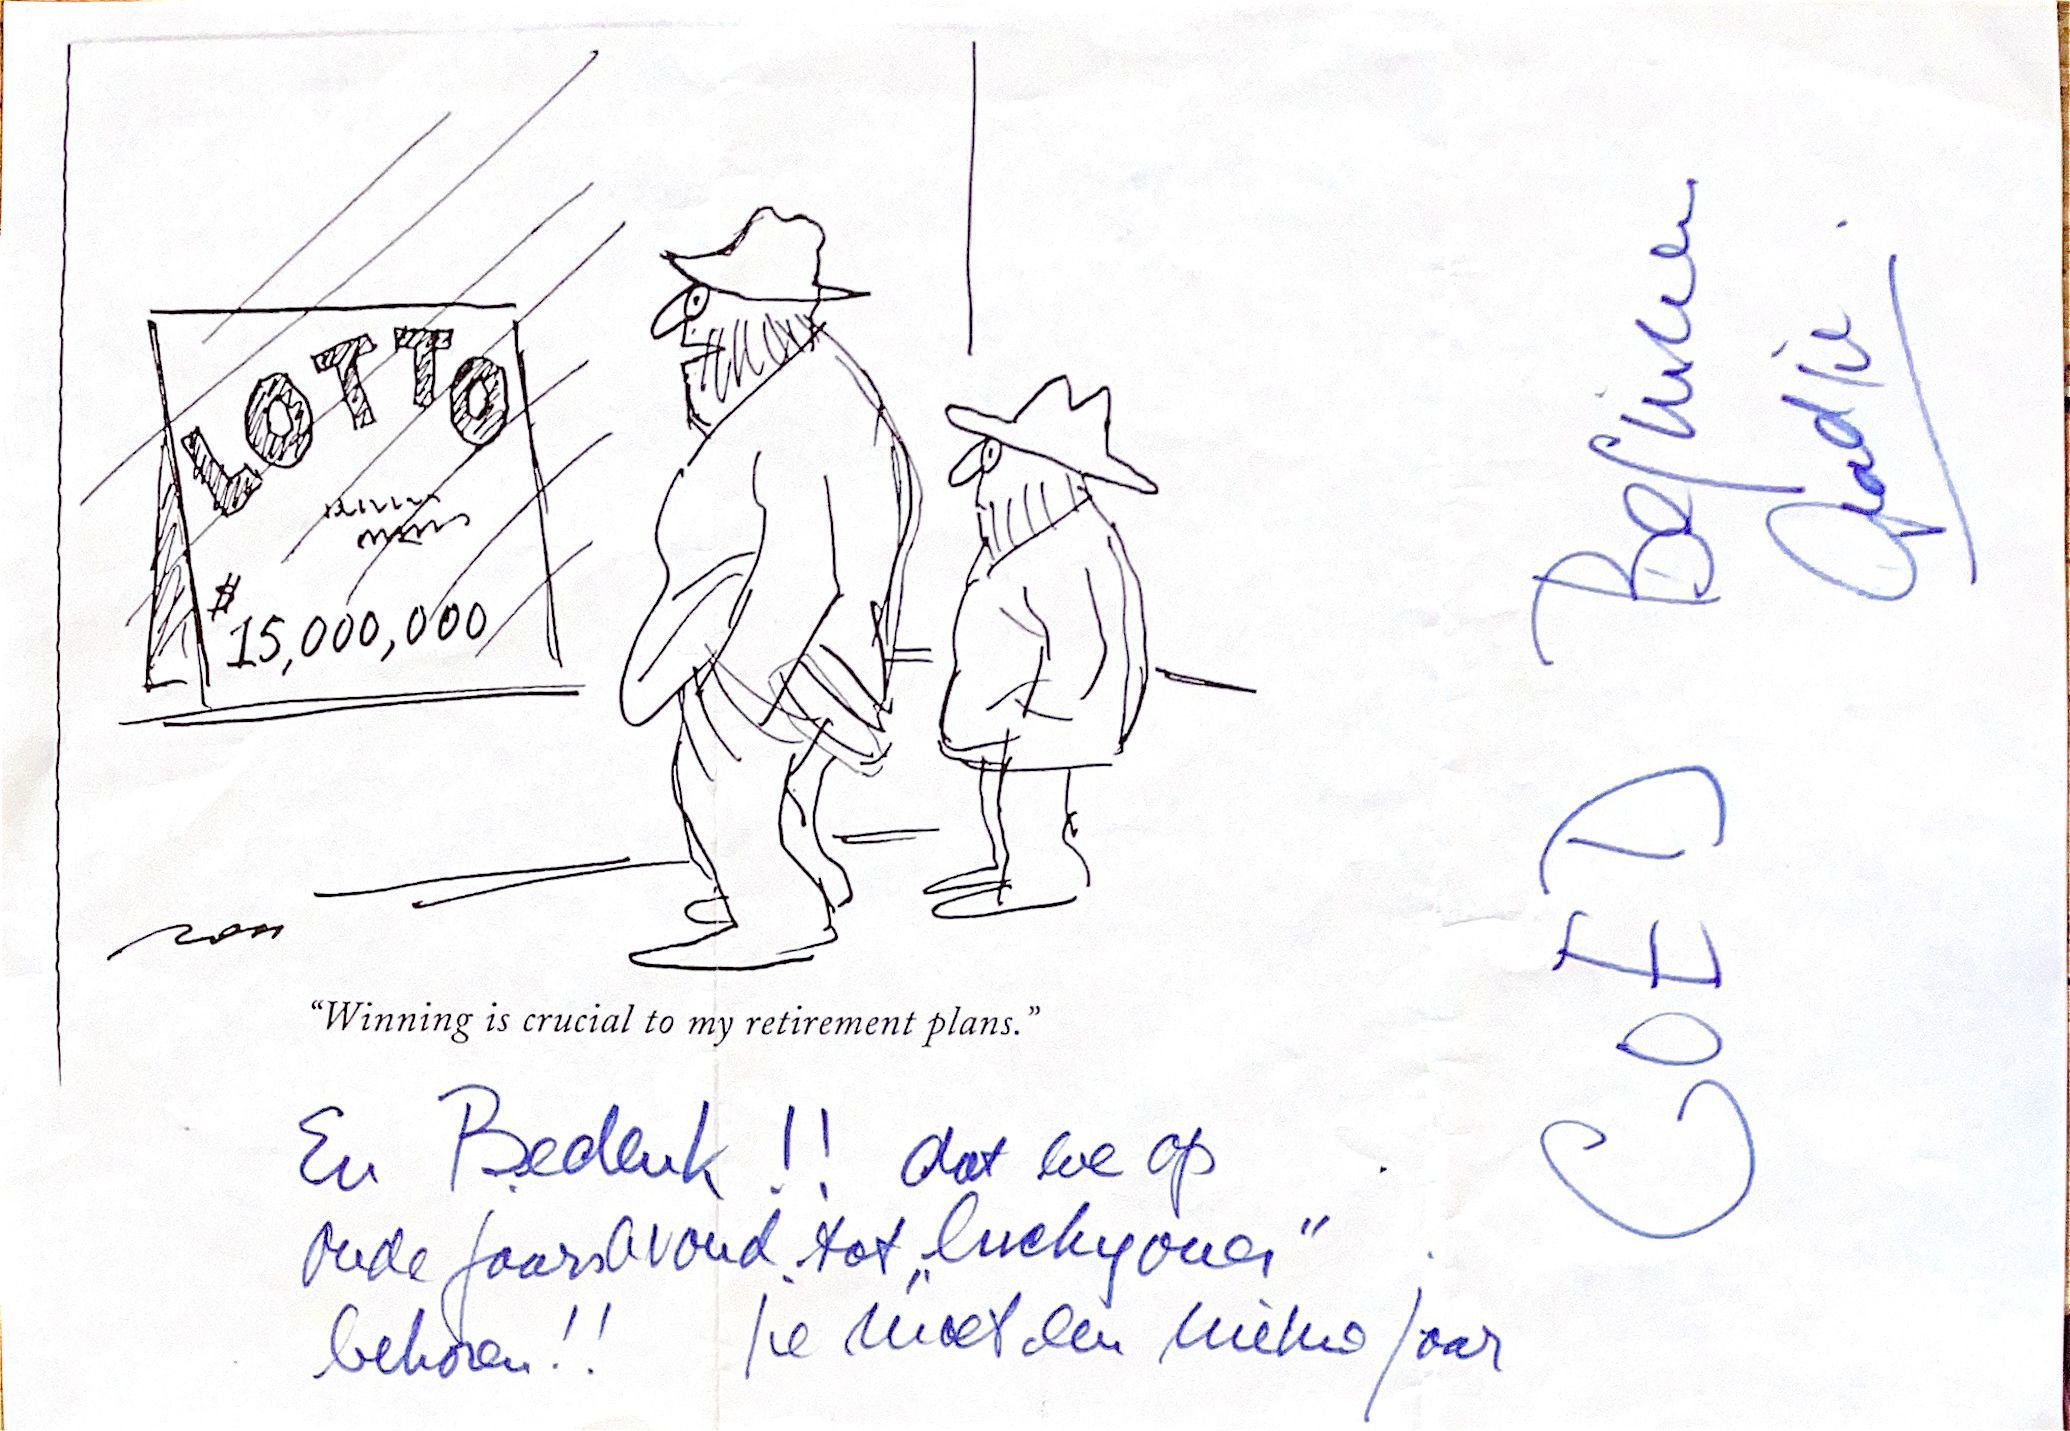 LOTTO
$
15,000,000
“Winning is crucial to my retirement plans.”
En Bedenk!! dat we op
oude jaarsavond tot „luckyones”
behoren!! Je moet een nieuw jaar
GOED Beginnen